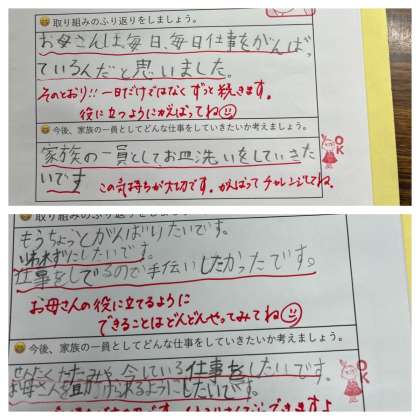 取り組みのふり返りをしましょう。
お母さんは、毎日、毎日仕事をがんばっ
ているんだと思いました。
そのとおり!!一日だけではなくずっと続きます。
役に立つようにがんばってね
今後、家族の一員としてどんな仕事をしていきたいか考えましょう。
家族の一員として、お皿洗いをしていきた
いです
この気持ちが大切です。がんばってチャレンジしてね。
OK
取り組みのふり返りをし
もうちょっとがんばりたいです。
いわれずにしたいです。
仕事をしてるので手伝いしたかったです。
お母さんの役に立てるように
できることはどんどんやってみてね
今後、家族の一員としてどんな仕事をしていきたいか考えましょう。
せんたくたたみや、今している仕事をしたいです。
お母さんを助けられるようにしたいです。
OK